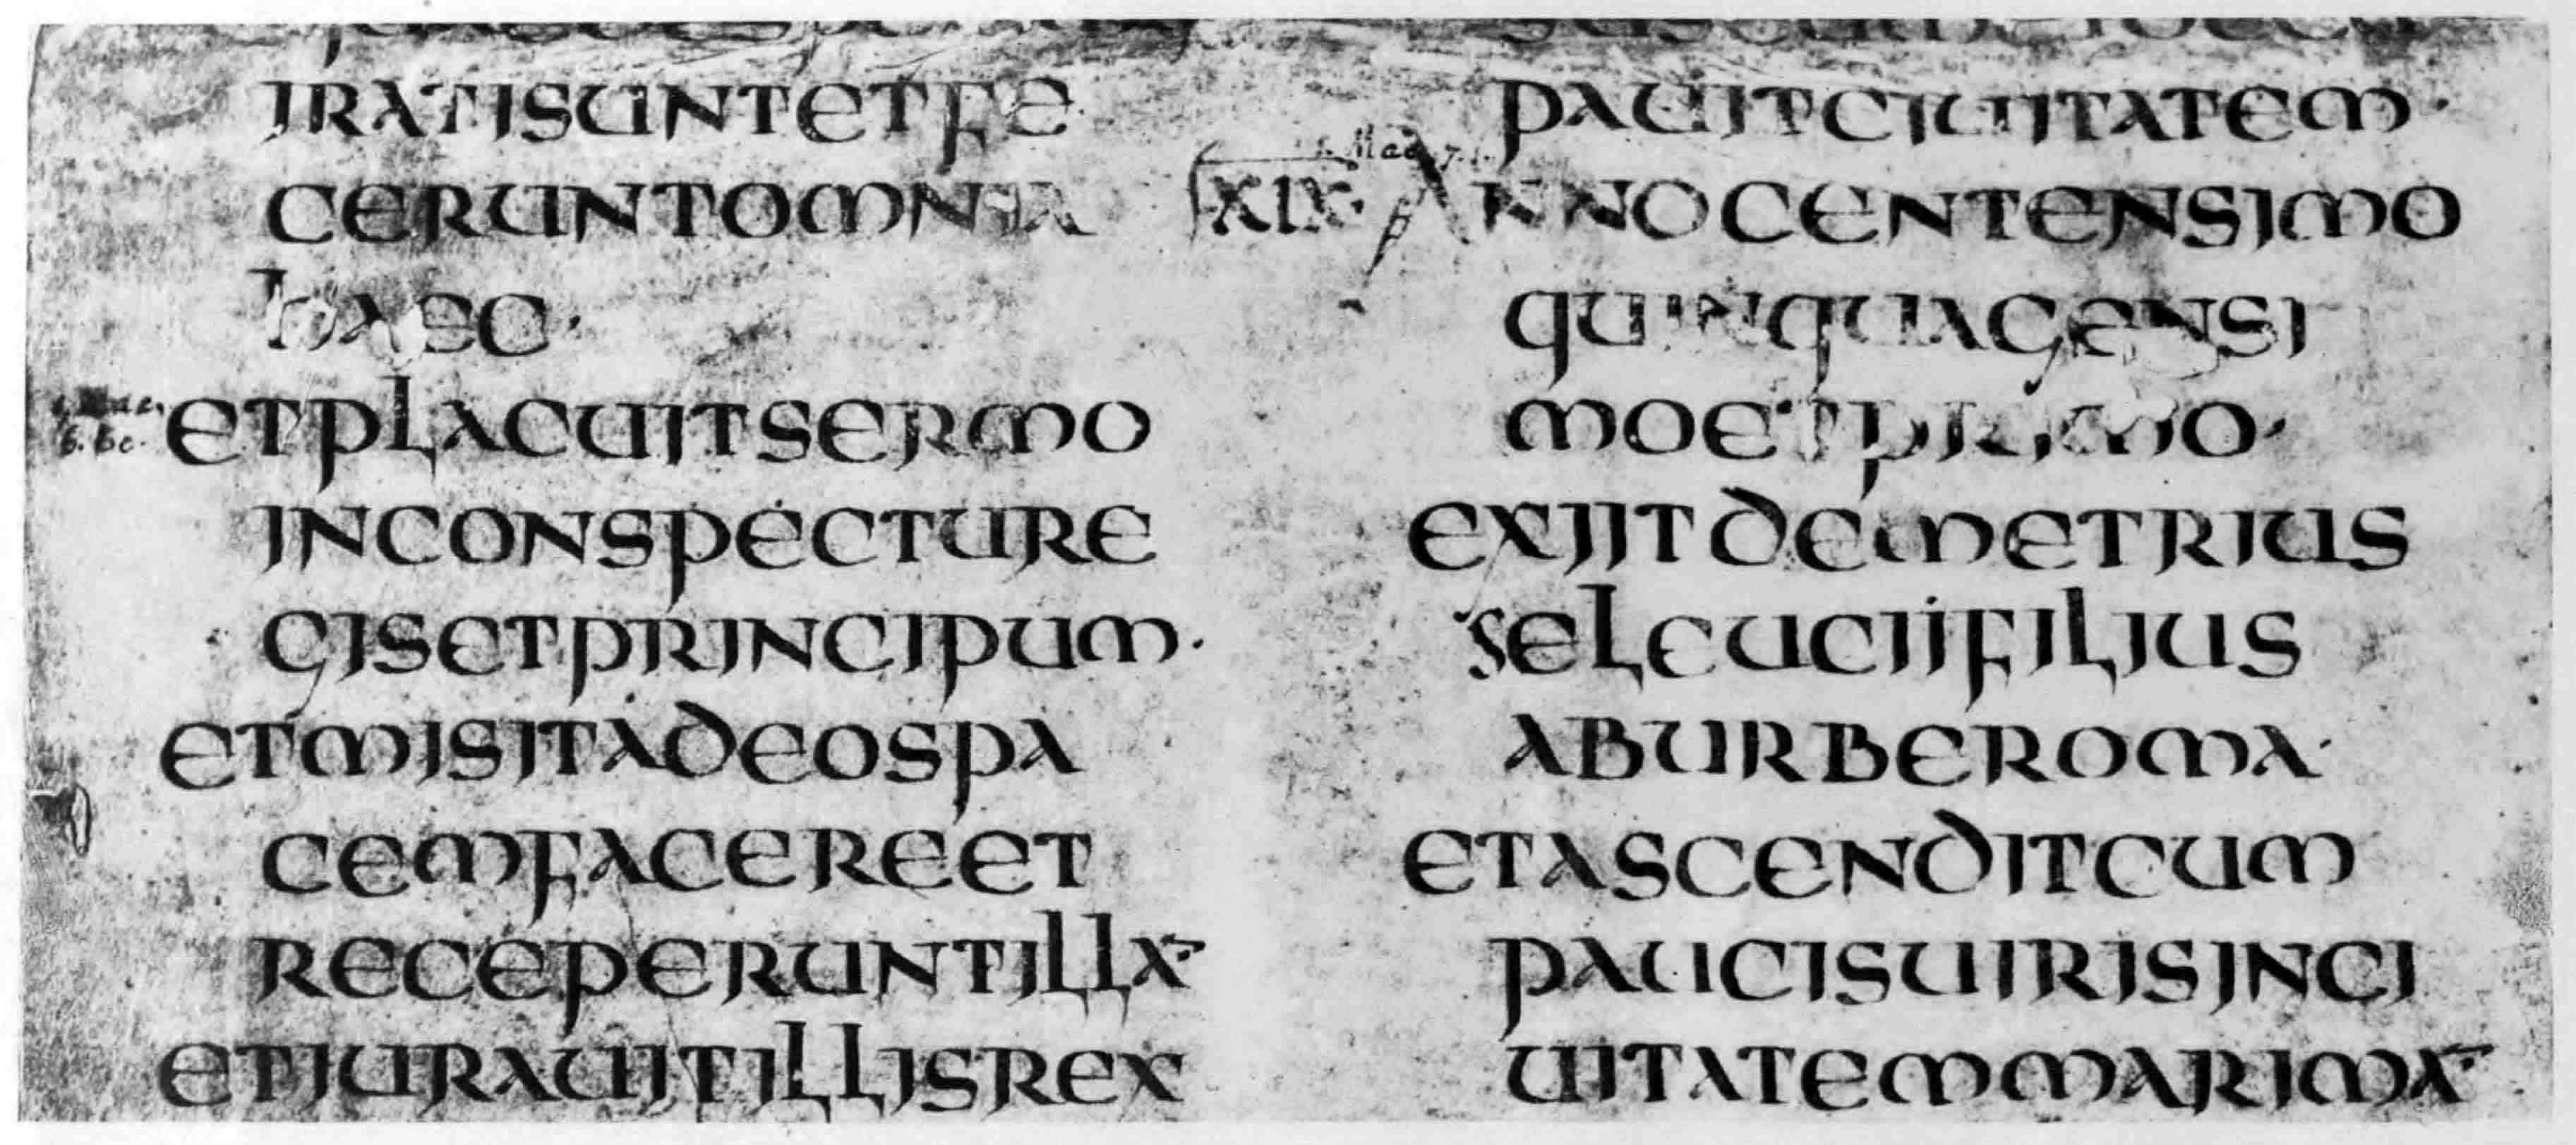 IRATISUNTETFE
CERUNTOMNIA
HAEC·
ETPLACUITSERMO
INCONSPECTURE
GISETPRINCIPUM·
ETMISITADEOSPA
CEMFACEREET
RECEPERUNTILLA
ETIURAUITILLISREX
PAUITCIUITATEM·
XIX· ANNOCENTENSIMO
1. Mac. 7. 1.
QUINQUAGENSI
MOETPRIMO·
EXIITDEMETRIUS
SELEUCIIFILIUS
ABURBEROMA·
ETASCENDITCUM
PAUCISUIRISINCI
UITATEMMARIMA